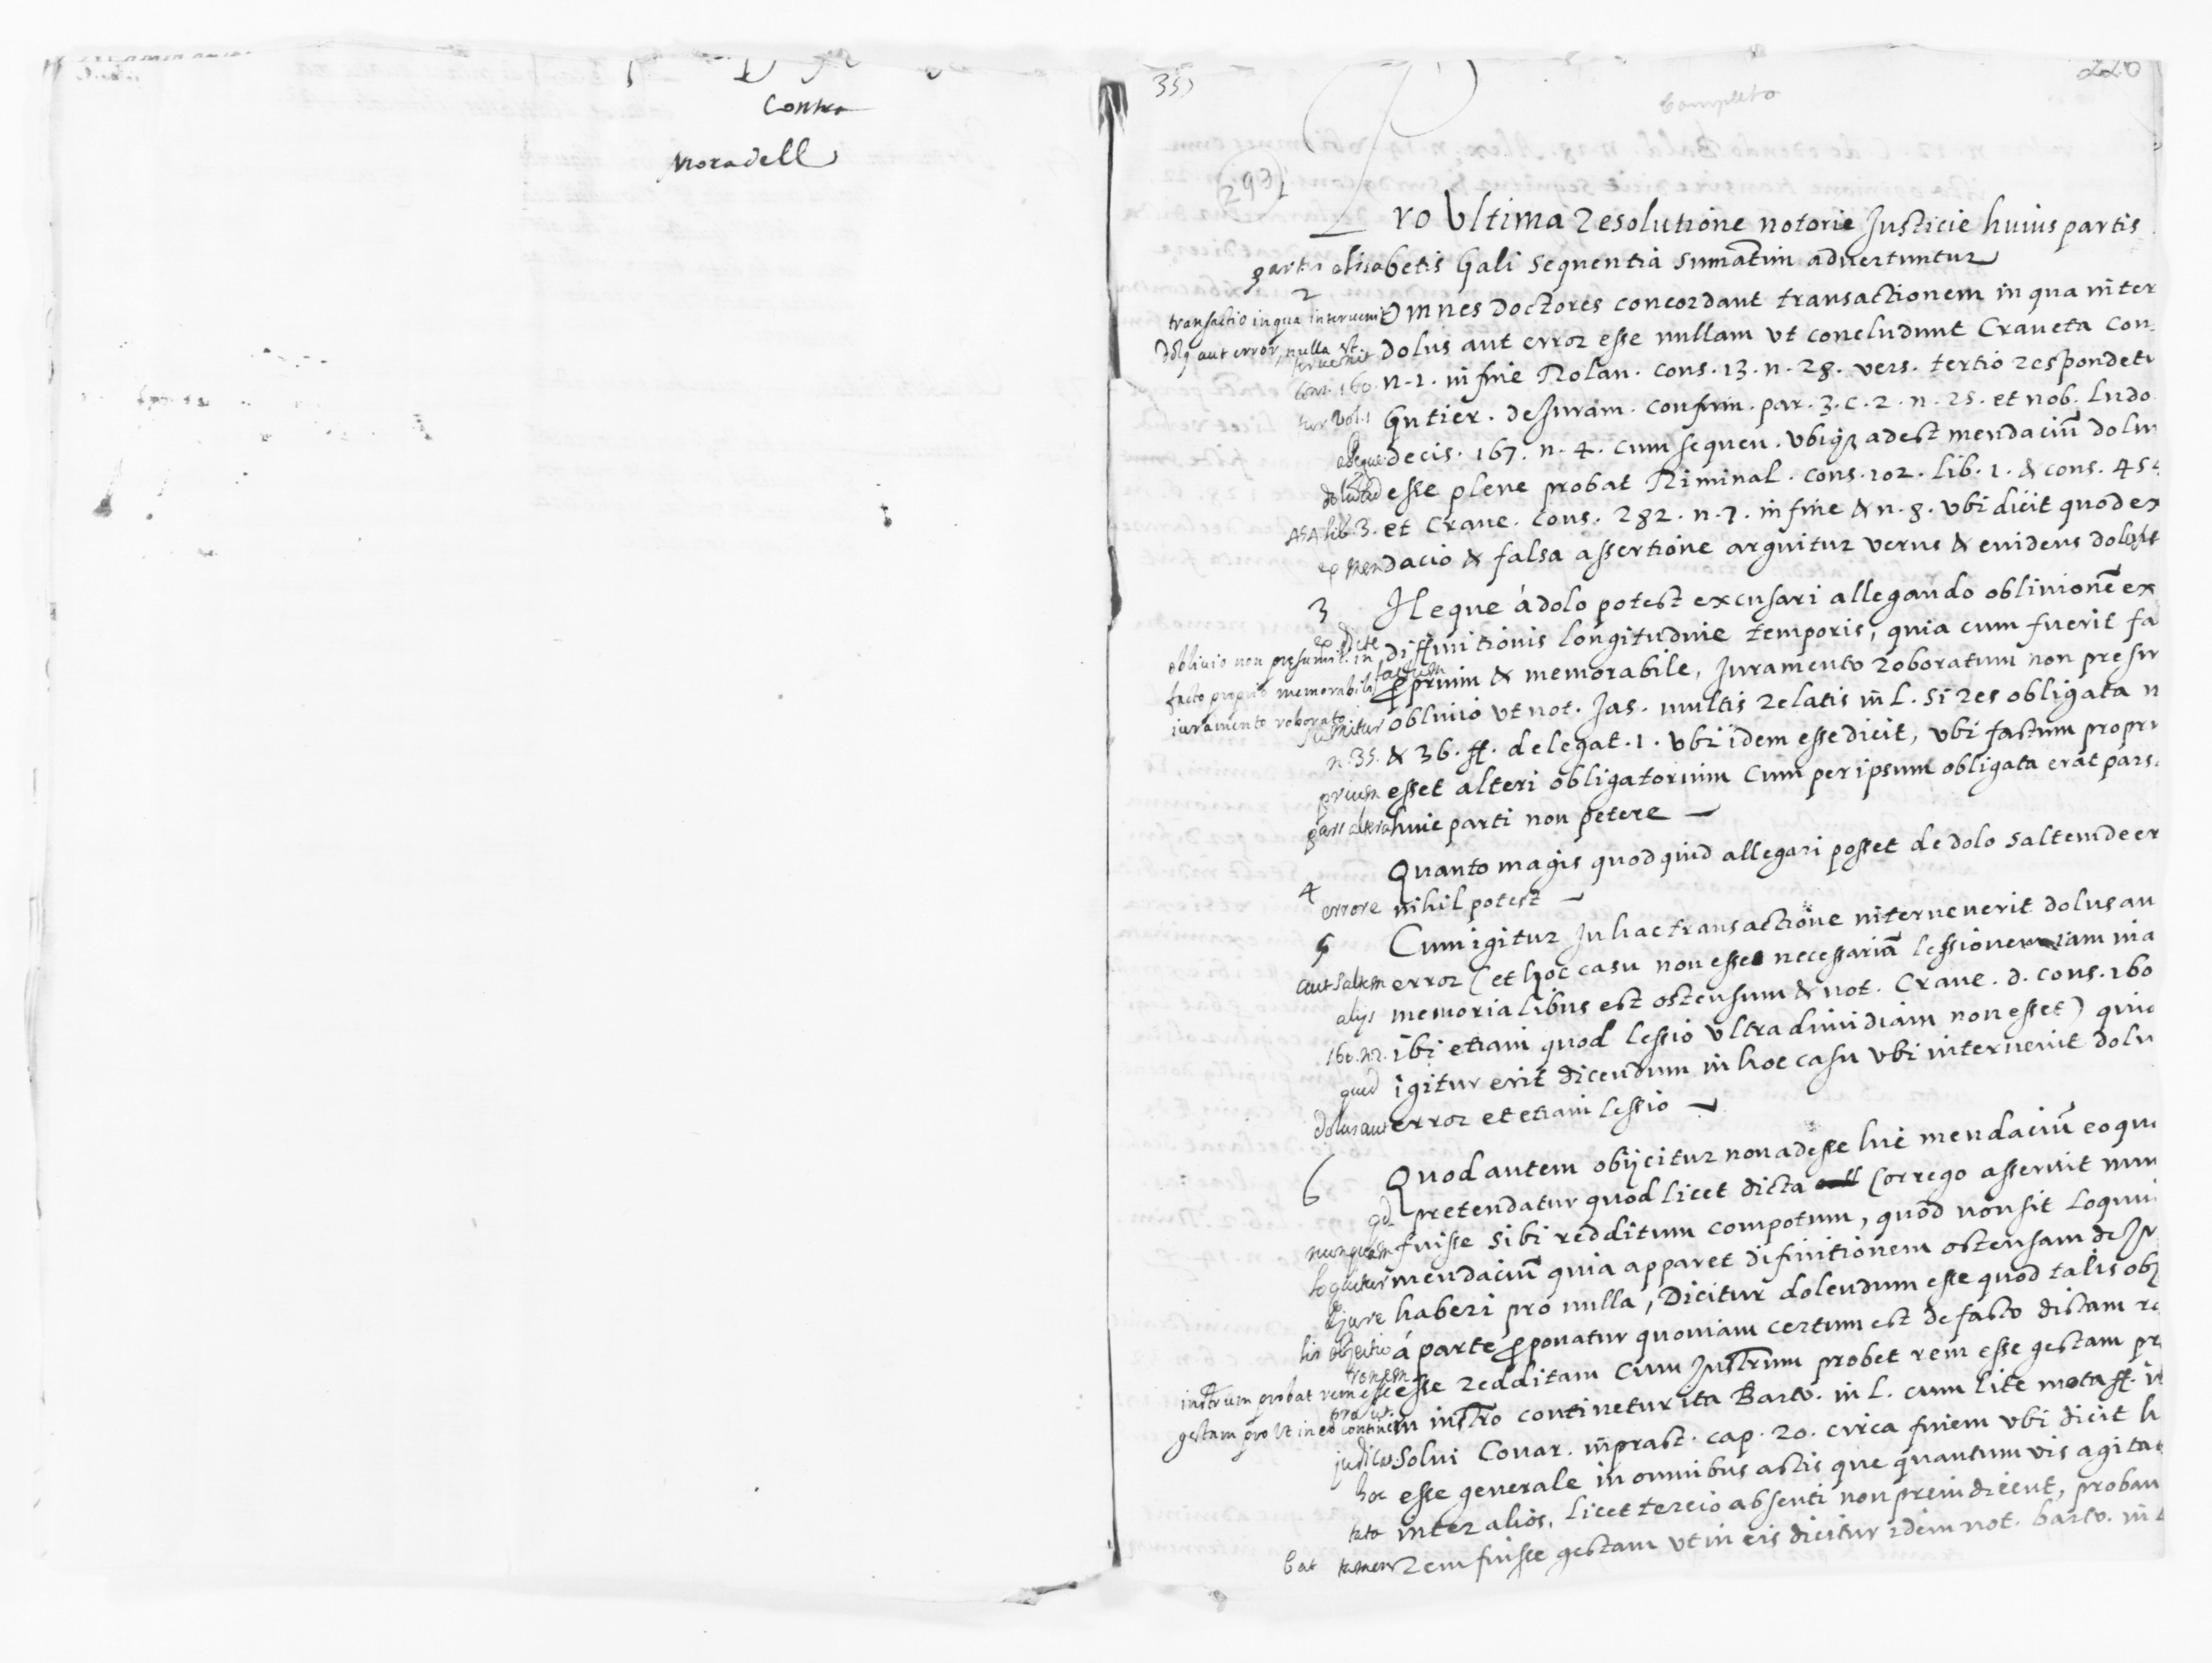 Contra
Moradell
335
220
Completo
293
Pro Ultima Resolutione notorie Justicie huius partis
partis elisabetis Gali sequentia sumatim advertuntur
2
transactio in qua intervenit
dolq aut error, nulla est
Omnes doctores concordant transactionem in qua inter
servenit dolus aut error esse nullam ut concludunt Craveta con
cons. 160. n. 1. in fine Rolan. cons. 13. n. 28. vers. tertio respondetu
tur vol. 1 Gutier. de Juram. confirm. par. 3. c. 2. n. 25. et nob. Ludo
decis. 167. n. 4. cum sequen. ubiq3 adest mendaciũ dolum
esse plene probat Riminal. cons. 102. lib. 1. & cons. 454
454 lib. 3. et Crave. cons. 282. n. 7. in fine & n. 8. ubi dicit quod ex
ex mendacio & falsa assertione arguitur verus & evidens dolus
3
oblivio non presumit. in
facto proprio memorabili
iuramento roborato
Neque á dolo potest excusari allegando oblivionẽ ex
ex dicte diffinitionis longitudine temporis, quia cum fuerit fa
factum proprium & memorabile, Juramento roboratum non presu
sumitur oblivio ut not. Jas. multis relatis in L. si res obligata n
n. 35. & 36. ff. de legat. 1. ubi idem esse dicit, ubi factum propri
prium esset alteri obligatorium cum per ipsum obligata erat pars
pars altera huic parti non petere
4
Quanto magis quod quid allegari posset de dolo saltem de er
errore nihil potest
5
Cum igitur In hac transactione intervenerit dolus au
aut saltem error (et hoc casu non esse necessariã lessionem iam in a
alijs memorialibus est ostensum & not. Crave. d. cons. 160
160. n. 2. ibi etiam quod lessio Ultra dimidiam non esset) quid
quid igitur erit dicendum in hoc casu ubi intervenit dolu
dolus aut error et etiam lessio
6
Quod autem obijcitur non adesse hic mendaciũ eo qu
qd. pretendatur quod licet dicta Corrego asseruit nun
nunquam fuisse sibi redditum compotum, quod non sit Loqui
loquitur mendaciũ quia apparet difinitionem ostensam de Ju
de jure haberi pro nulla, Dicitur dolendum esse quod talis obj
lis objectio á parte proponatur quoniam certum est de facto dictam ra
tionem esse redditam cum Instrum probet rem esse gestam pr
instrum probat rem esse
gestam pro ut in eo continet.
pro ut in instro continetur ita Barto. in l. cum lite mota ff. iu
judicat. Solvi Covar. in pract. cap. 20. circa finem ubi dicit h
hoc esse generale in omnibus actis que quantumvis agitat
tata inter alios, licet tercio absenti non preiudicent, proban
bat tamen rem fuisse gestam ut in eis dicitur idem not. barto. in